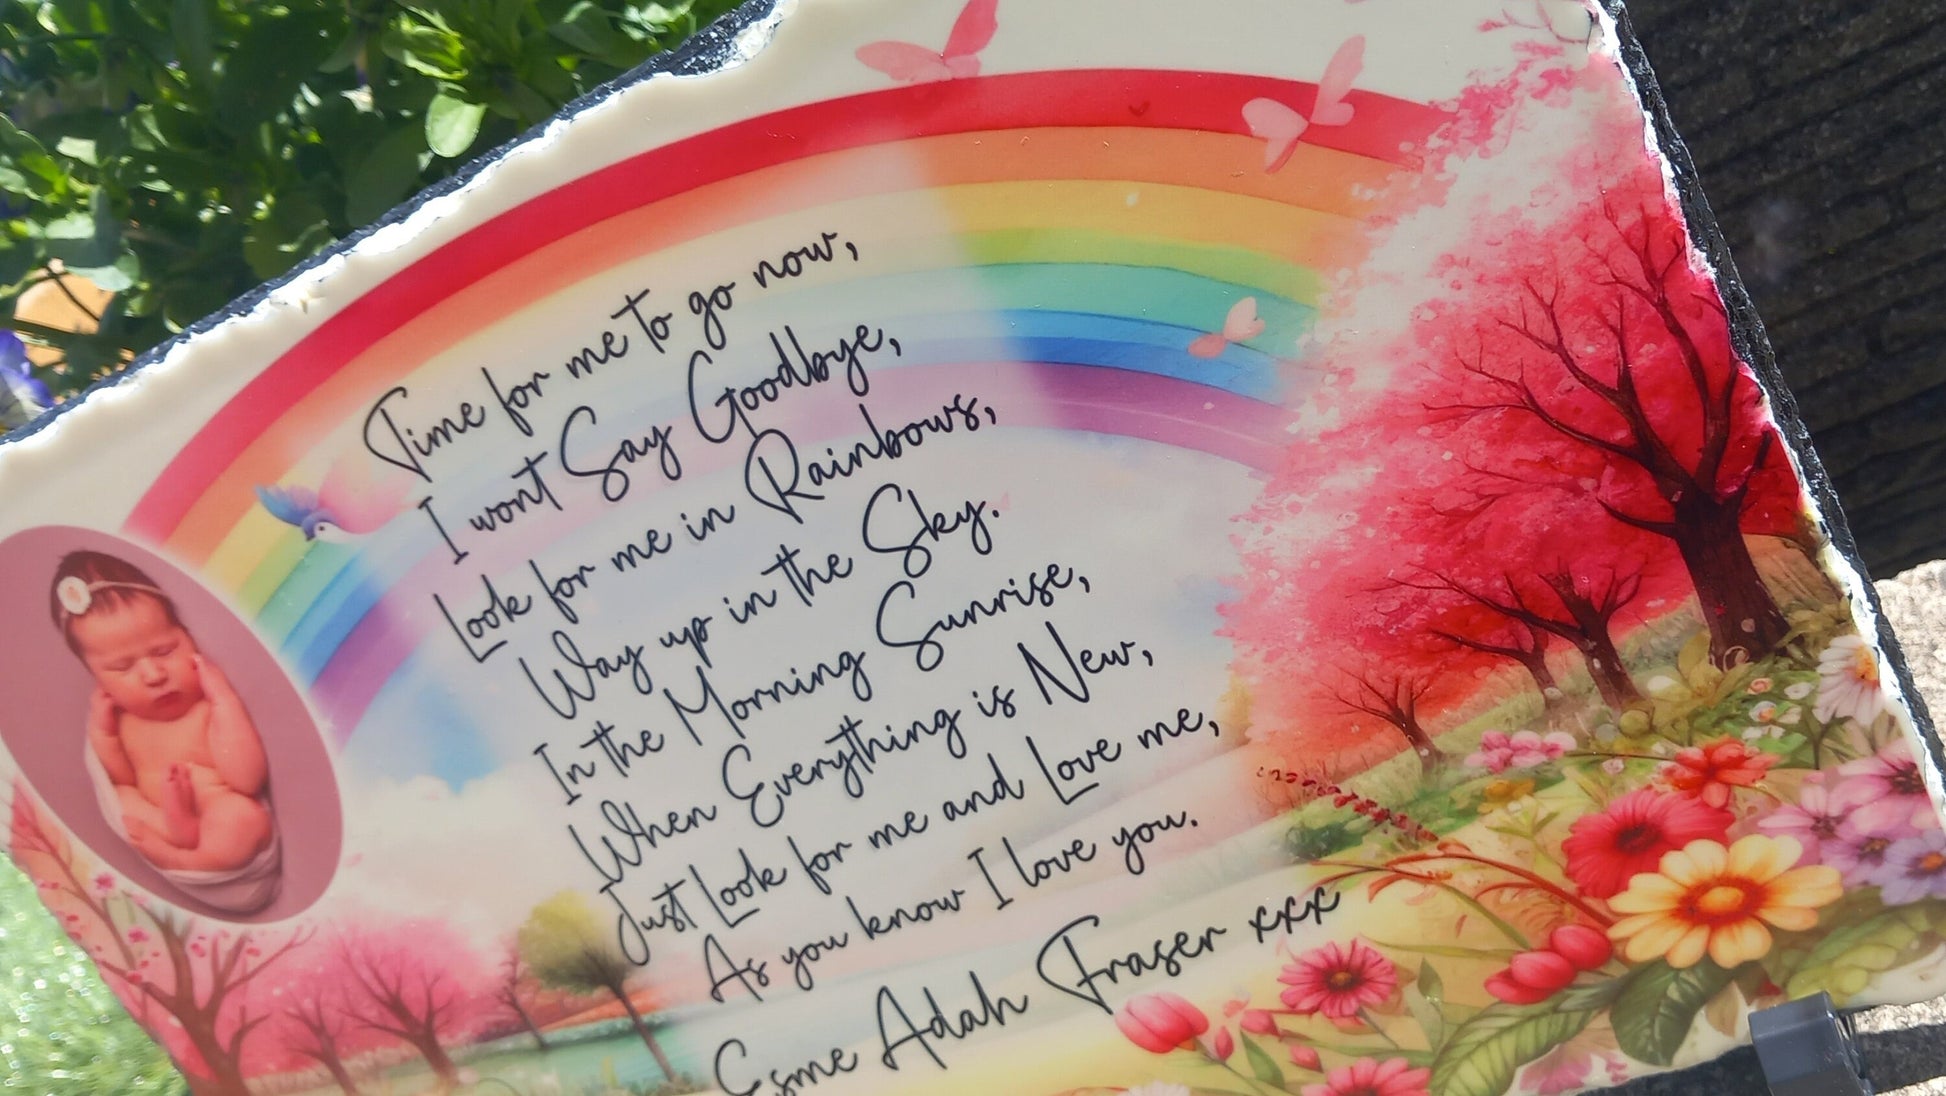 Time for me to go now,
I wont Say Goodbye,
Look for me in Rainbows,
Way up in the Sky.
In the Morning Sunrise,
When Everything is New,
Just Look for me and Love me,
As you know I love you.
Esme Adah Fraser xxx